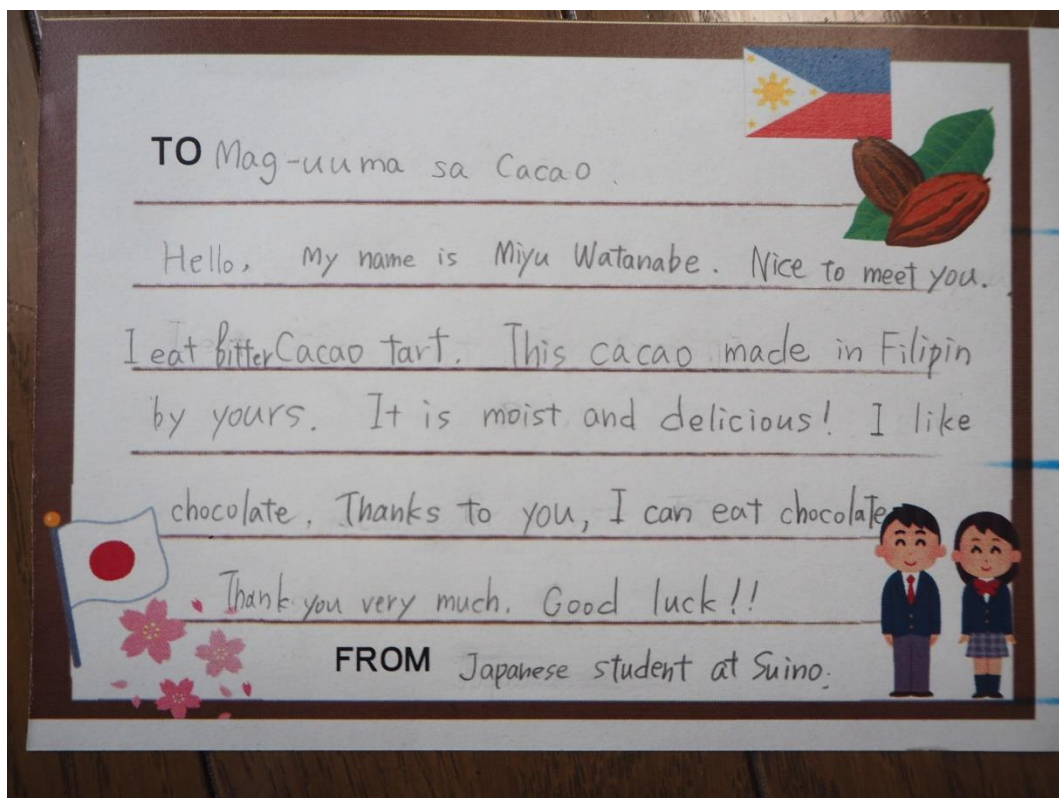 TO Mag-uuma sa Cacao.
Hello, My name is Miyu Watanabe. Nice to meet you.
I eat bitter Cacao tart. This cacao made in Filipin
by yours. It is moist and delicious! I like
chocolate. Thanks to you, I can eat chocolate
Thank you very much. Good luck!!
FROM Japanese student at Suino.